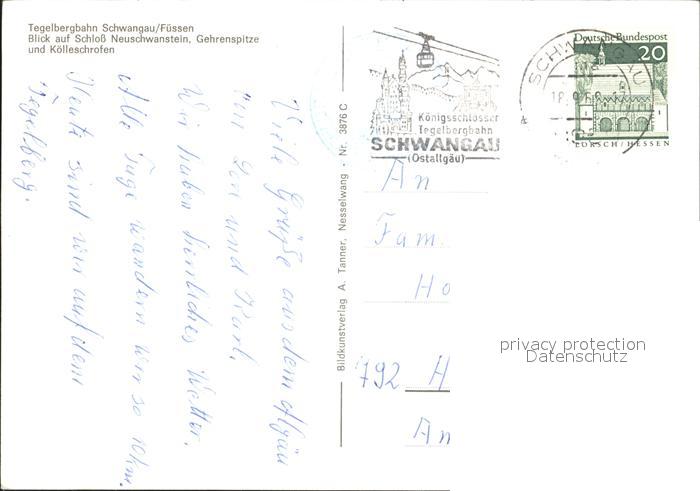 Tegelbergbahn Schwangau/Füssen
Blick auf Schloß Neuschwanstein, Gehrenspitze
und Kölleschrofen
Viele Grüße aus dem Allgäu
von und Karl.
Wir haben herrliches Wetter.
Alle Tage wandern wir so 10 km.
Heute sind wir auf dem
Tegelberg.
Bildkunstverlag A. Tanner, Nesselwang · Nr. 3876 C
Königsschlösser
Tegelbergbahn
SCHWANGAU
(Ostallgäu)
SCHWANGAU
18.9.
Deutsche Bundespost
20
LORSCH/HESSEN
An
Fam.
Ho
792 H
Am
privacy protection
Datenschutz